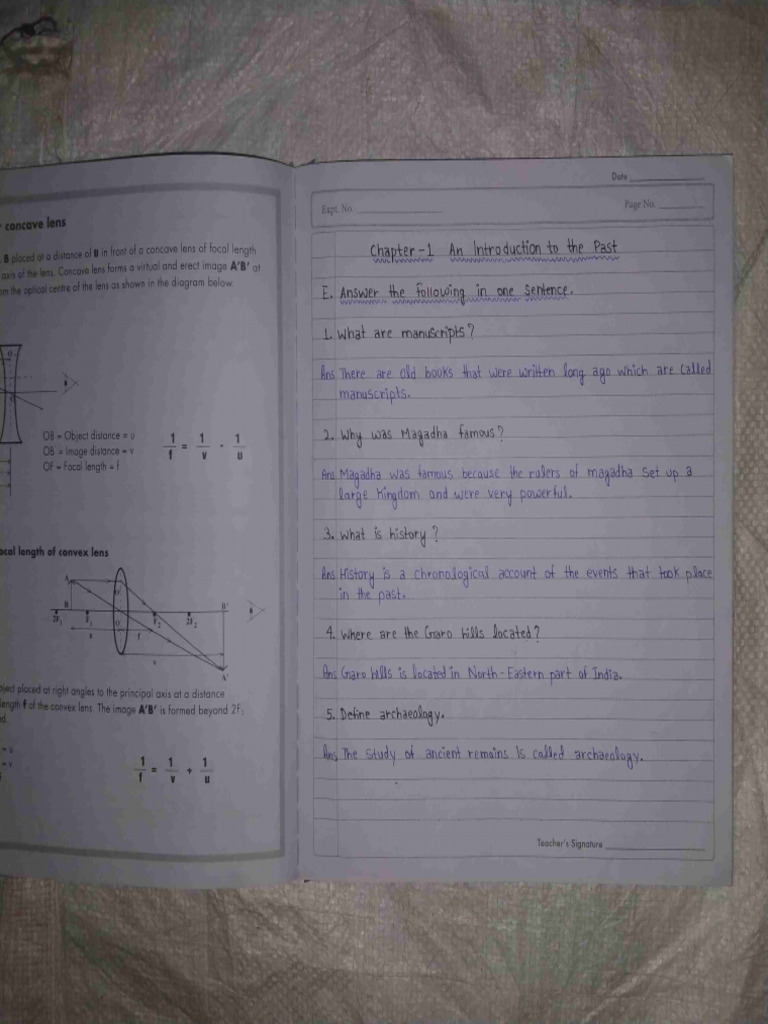 concave lens
B placed at a distance of u in front of a concave lens of focal length
axis of the lens. Concave lens forms a virtual and erect image A'B' at
the optical centre of the lens as shown in the diagram below.
OB = Object distance = u
OB = Image distance = v
OF = Focal length = f
1/f = 1/v - 1/u
length of convex lens
A
B
2F1
F1
O
F2
2F2
B'
u
f
v
A'
placed at right angles to the principal axis at a distance
length f of the convex lens. The image A'B' is formed beyond 2F
= u
= v
1/f = 1/v + 1/u
Date
Expt. No.
Page No.
Chapter-1 An Introduction to the Past
E. Answer the following in one sentence.
1. What are manuscripts?
Ans There are old books that were written long ago which are called
manuscripts.
2. Why was Magadha famous?
Ans Magadha was famous because the rulers of magadha set up a
large kingdom and were very powerful.
3. What is history?
Ans History is a chronological account of the events that took place
in the past.
4. Where are the Garo hills located?
Ans Garo hills is located in North-Eastern part of India.
5. Define archaeology.
Ans The study of ancient remains is called archaeology.
Teacher's Signature